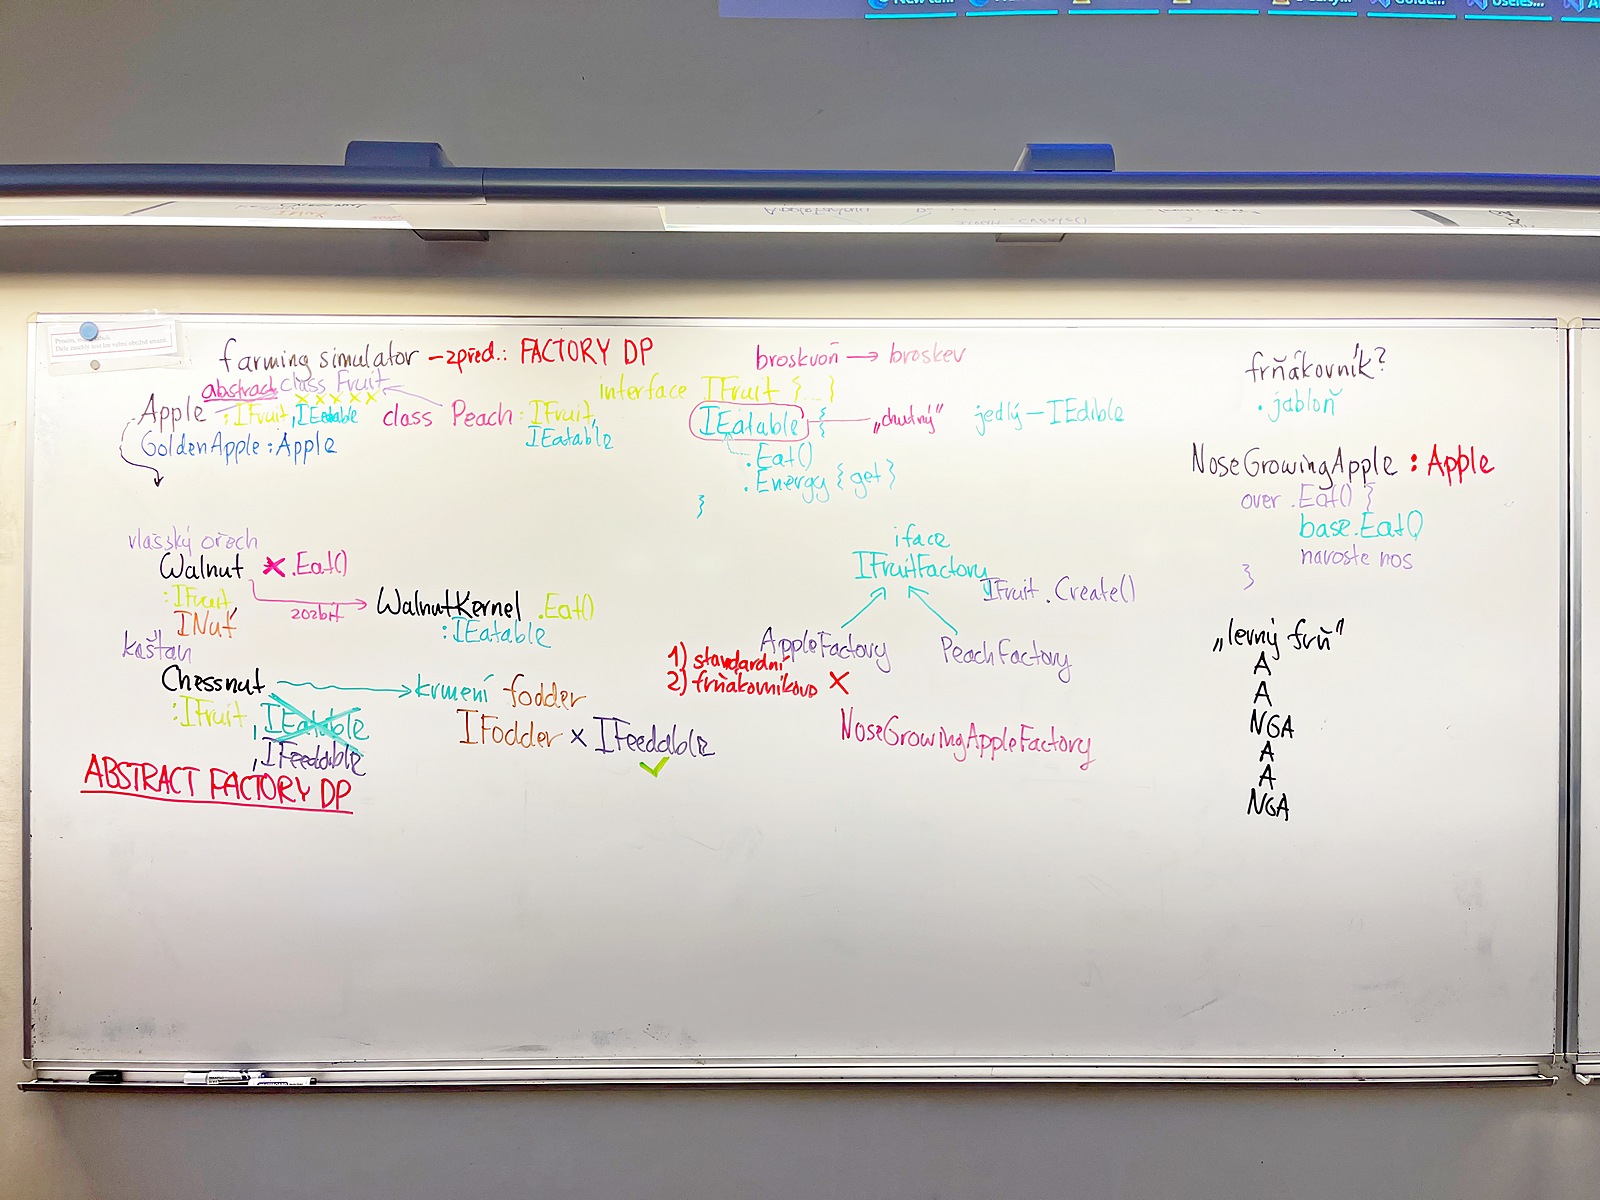 farming simulator – zpřed.: FACTORY DP
abstract class Fruit
Apple : IFruit, IEatable
GoldenApple : Apple
class Peach : IFruit,
IEatable
broskvoň → broskev
interface IFruit {...}
IEatable { "chutný"
jedlý – IEdible
.Eat()
.Energy { get }
}
frňákovník?
. jabloň
NoseGrowingApple : Apple
over .Eat() {
base.Eat()
naroste nos
}
vlašský ořech
Walnut × .Eat()
: IFruit,
INut
rozbít
WalnutKernel .Eat()
: IEatable
kaštan
Chessnut → krmení fodder
: IFruit
, IEatable
, IFeedable
IFodder × IFeedable ✓
ABSTRACT FACTORY DP
iface
IFruitFactory
IFruit .Create()
AppleFactory
PeachFactory
1) standardní
2) frňákovníkovo ×
NoseGrowingAppleFactory
„levný frň“
A
A
NGA
A
A
NGA